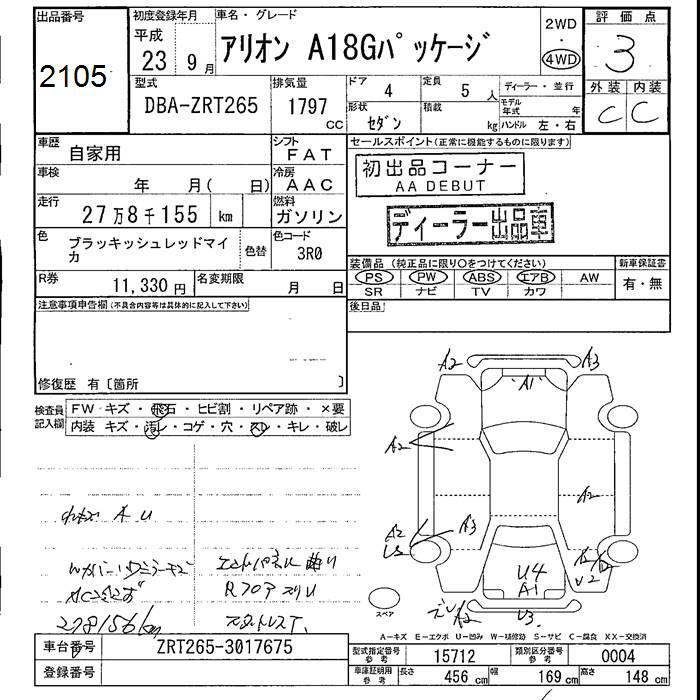 出品番号
2105
初度登録年月
平成
23 9月
車名・グレード
アリオン A18Gパッケージ
2WD
・
4WD
評価点
3
外装 内装
C C
型式
DBA-ZRT265
排気量
1797
CC
ドア
4
定員
5 人
形状
セダン
積載
kg
ディーラー・並行
モデル年式 年
ハンドル 左・右
車歴
自家用
シフト
FAT
車検
年 月( 日)
冷房
AAC
走行
27万8千155 km
燃料
ガソリン
色
ブラッキッシュレッドマイカ
色替
色コード
3R0
R券
11,330 円
名変期限
月 日
セールスポイント(正常に機能するものに限ります)
初出品コーナー
AA DEBUT
ディーラー出品車
装備品(純正品に限り○をつけてください)
PS PW ABS エアB AW
SR ナビ TV カワ
新車保証書
有・無
後日品
注意事項申告欄(不具合内容等は具体的に記入して下さい)
修復歴 有〔箇所 〕
検査員記入欄
FW キズ・飛石・ヒビ割・リペア跡・×要
内装 キズ・汚レ・コゲ・穴・スレ・キレ・破レ
A U
278156km
Rフロア スリ
A2 A3
A1
A2
A2
A2
A3
U4
A1
U2
U3
スペア
A-キズ E-エクボ U-凹み W-補修跡 S-サビ C-腐食 XX-交換済
車台番号
ZRT265-3017675
登録番号
型式指定番号
参考
15712
類別区分番号
参考
0004
車庫証明用
参考
長さ 456 cm
幅 169 cm
高さ 148 cm